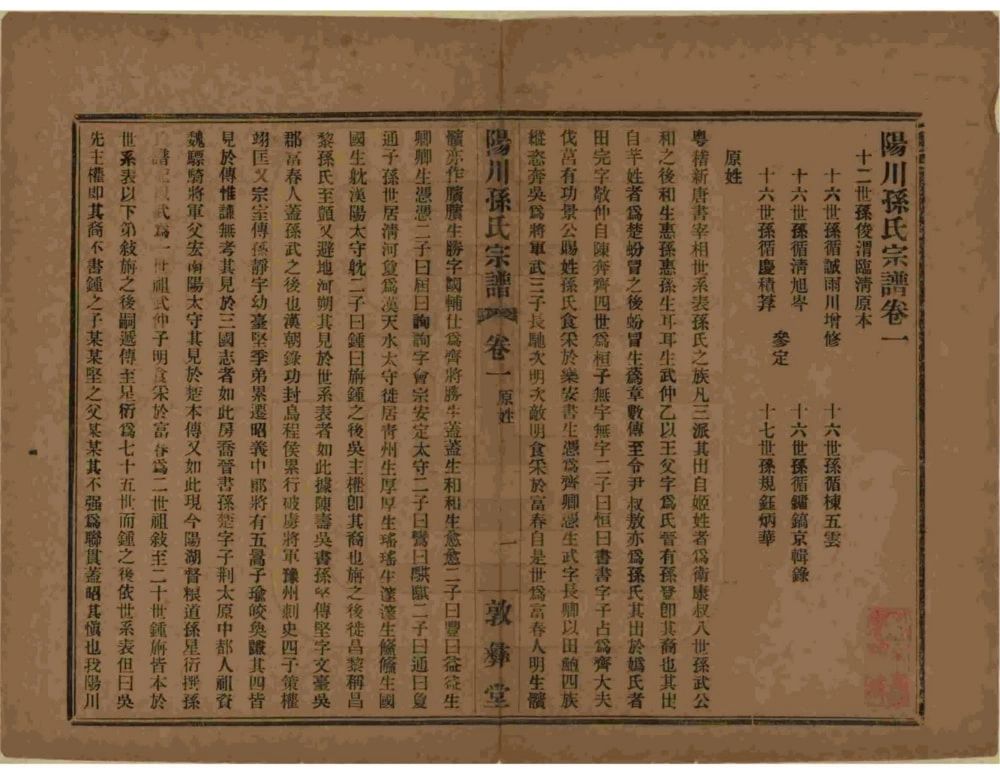 陽川孫氏宗譜卷一
十二世孫俊渭臨清原本
十六世孫循誠雨川增修 十六世孫循棟五雲
十六世孫循清旭岑 參定 十六世孫循鏞鎬京輯錄
十六世孫循慶積葊 十七世孫規鈺炳華
原姓
粵稽新唐書宰相世系表孫氏之族凡三派其出自姬姓者爲衛康叔八世孫武公
和之後和生惠孫惠孫生耳耳生武仲乙以王父字爲氏晉有孫登卽其裔也其出
自羋姓者爲楚蚡冒之後蚡冒生蒍章數傳至令尹叔敖亦爲孫氏其出於嬀氏者
田完字敬仲自陳奔齊四世爲桓子無宇無宇二子曰恒曰書書字子占爲齊大夫
伐莒有功景公賜姓孫氏食采於樂安書生憑爲齊卿憑生武字長卿以田鮑四族
縱恣奔吳爲將軍武三子長馳次明次敵明食采於富春自是世爲富春人明生臏
陽川孫氏宗譜 卷一 原姓 一 敦彝堂
臏亦作髕臏生勝字國輔仕爲齊將勝生蓋蓋生和和生愈愈二子曰豐曰益益生
卿卿生憑憑二子曰屈曰詢詢字會宗安定太守二子曰鸞曰騏騏二子曰通曰敻
通子孫世居清河敻爲漢天水太守徙居青州生厚厚生瑤瑤生邃邃生儵儵生國
國生躭漢陽太守躭二子曰鍾曰旃鍾之後吳主權卽其裔也旃之後徙昌黎稱昌
黎孫氏至顗又避地河朔其見於世系表者如此據陳壽吳書孫堅傳堅字文臺吳
郡富春人蓋孫武之後也漢朝錄功封烏程侯累行破虜將軍豫州刺史四子策權
翊匡又宗室傳孫靜字幼臺堅季弟累遷昭義中郎將有五暠子瑜皎奐謙其四皆
見於傳惟謙無考其見於三國志者如此房喬晉書孫楚字子荊太原中都人祖資
魏驃騎將軍父宏南陽太守其見於楚本傳又如此現今陽湖督糧道孫星衍撰孫
譜記以武爲一世祖武仲子明食采於富春爲二世祖敍至二十世鍾旃皆本於
世系表以下第敍旃之後嗣遞傳至星衍爲七十五世而鍾之後依世系表但曰吳
先主權卽其裔不書鍾之子某某堅之父某某其不强爲聯貫蓋昭其愼也我陽川